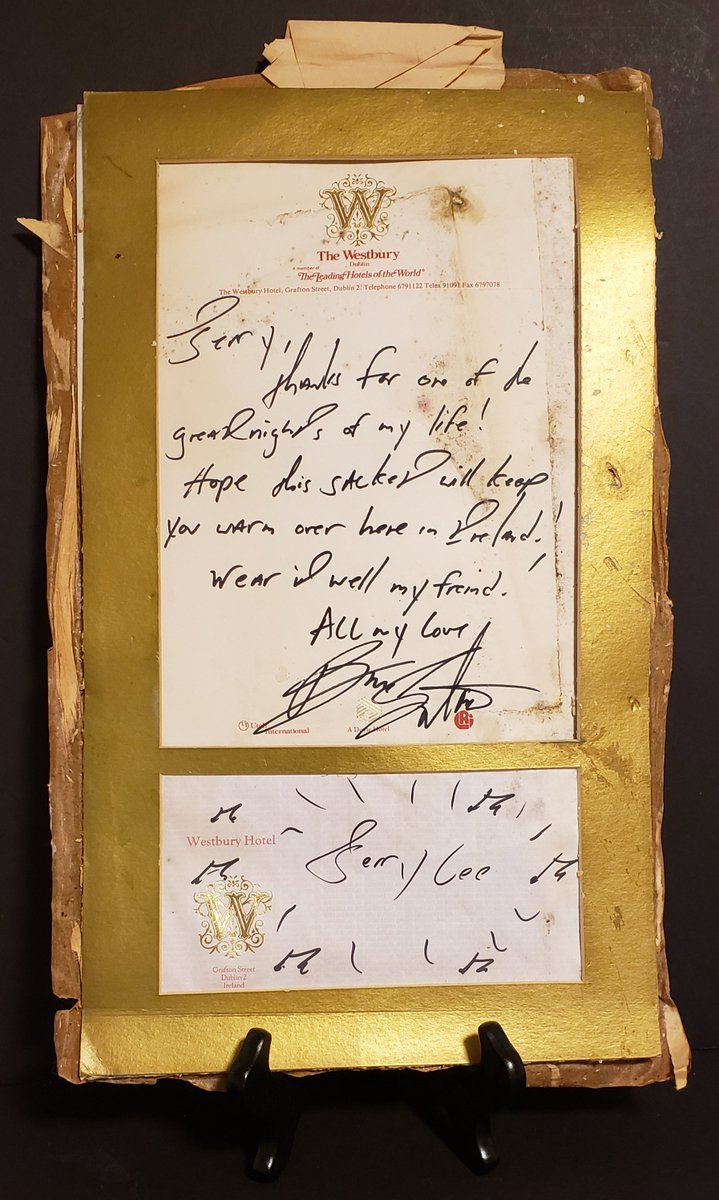 W
The Westbury
Dublin
A member of
The Leading Hotels of the World®
The Westbury Hotel, Grafton Street, Dublin 2. Telephone 6791122 Telex 91091 Fax 6797078
Jerry,
thanks for one of the
great nights of my life!
Hope this jacket will keep
you warm over here in Ireland!
Wear it well my freind.
All my love,
International
A Doyle Hotel
Westbury Hotel
Jerry Lee
W
Grafton Street
Dublin 2
Ireland